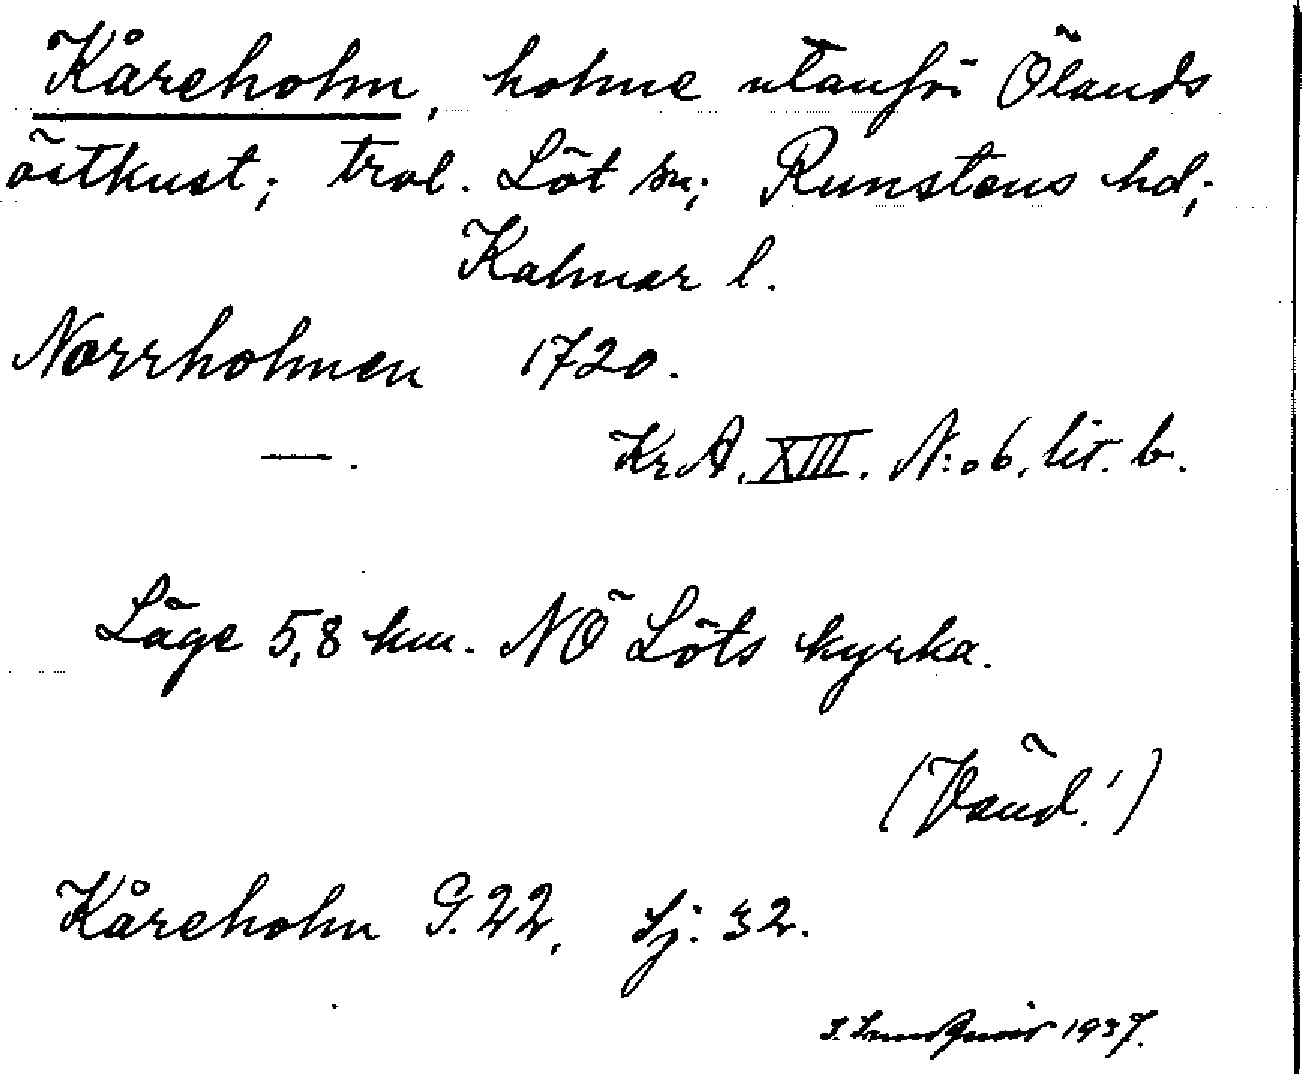 Kåreholm, holme utanför Ölands
östkust; trol. Löt sn; Runstens hd;
Kalmar l.
Norrholmen 1720.
— . KrA. XIII. N:o 6. lit. b.
Läge 5,8 km. NÖ Löts kyrka.
(Vänd!)
Kåreholm G. 22, Sj: 32.
I. Lundquist 1937.